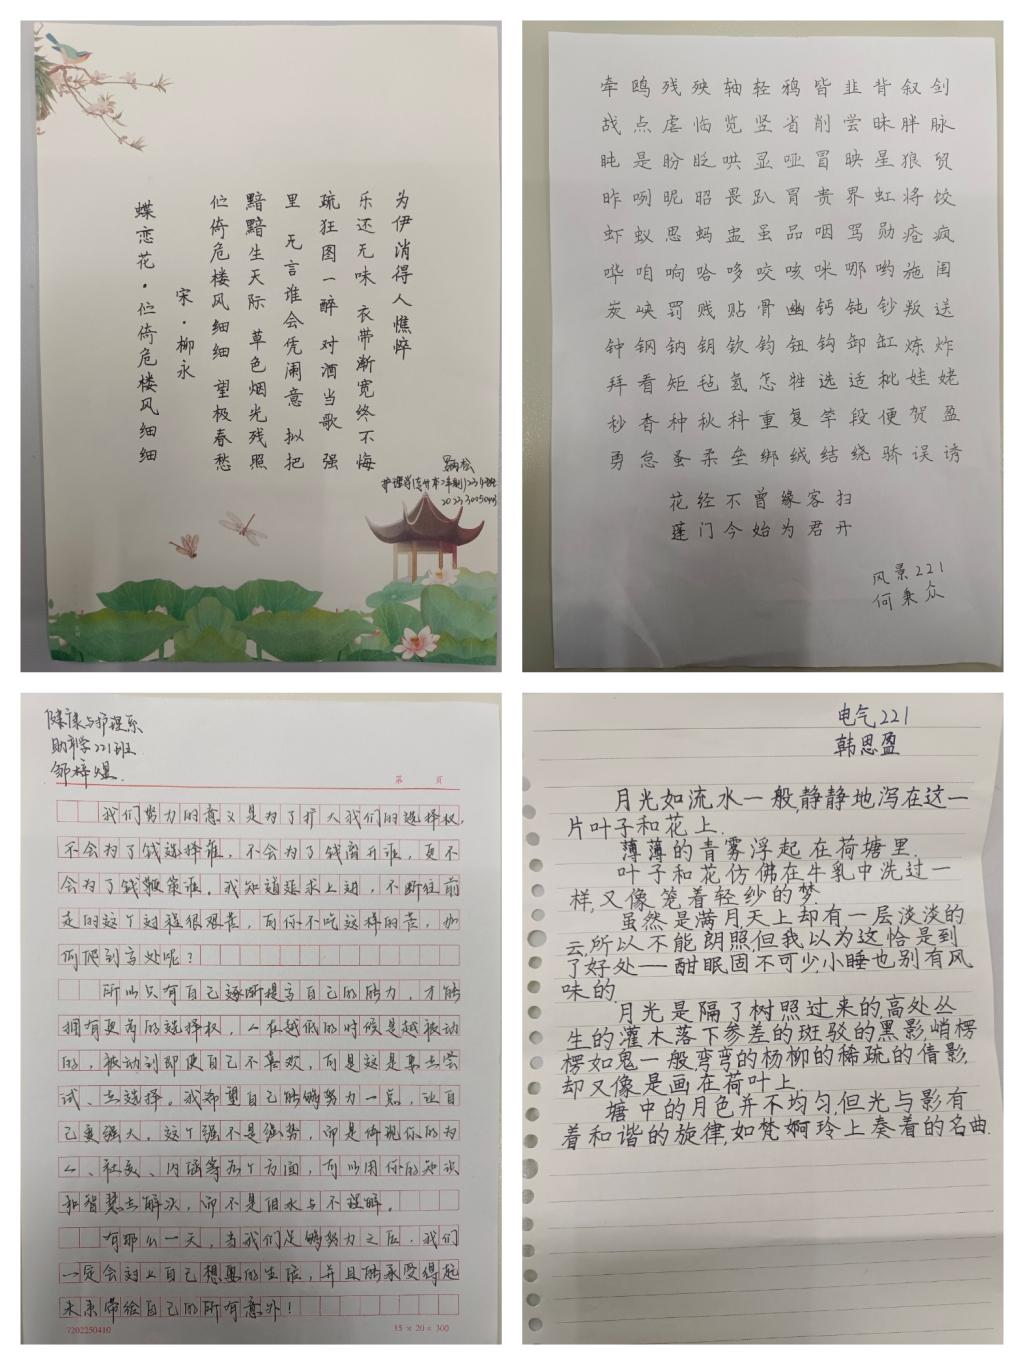 蝶恋花·伫倚危楼风细细
宋·柳永
伫倚危楼风细细 望极春愁
黯黯生天际 草色烟光残照
里 无言谁会凭阑意 拟把
疏狂图一醉 对酒当歌 强
乐还无味 衣带渐宽终不悔
为伊消得人憔悴
牵鸥残殃轴轻鸦皆韭背叙剑
战点虐临览竖省削尝昧胖脉
盹是盼眨哄显哑冒映星狼贸
昨咧昵昭畏趴胃贵界虹将饺
虾蚁思蚂盅虽品咽骂勋疮疯
哗咱响哈哆咬咳咪哪哟施闺
炭峡罚贱贴骨幽钙钝钞叛送
钟钢钠钥钦钧钮钩卸缸炼炸
拜看矩毡氢怎牲选适秕娃姥
秒香种秋科重复竿段便贺盈
勇怠蚤柔垒绑绒结绕骄误诱
花经不曾缘客扫
蓬门今始为君开
风景221
何秉众
健康与护理系
助产学221班
邹梓煜
第 页
我们努力的意义是为了扩大我们的选择权,
不会为了钱选择谁,不会为了钱离开谁,更不
会为了钱鞭策谁。我知道追求上进,不断往前
走的这个过程很艰苦,而你不吃这样的苦,如
何爬到高处呢?
所以只有自己逐渐提高自己的能力,才能
拥有更多的选择权,人在越低的时候是越被动
的,被动到即便自己不喜欢,可是这是要去尝
试、去选择。我希望自己能够努力一点,让自
己变强大,这个强不是强势,而是体现你的为
人、社交、内涵等各个方面,可以用你的知识
和智慧去解决,而不是泪水与不理解。
有那么一天,当我们足够努力之后,我们
一定会过上自己想要的生活,并且能承受得起
未来带给自己的所有意外!
7202250410
15 × 20 = 300
电气221
韩思盈
月光如流水一般,静静地泻在这一
片叶子和花上.
薄薄的青雾浮起在荷塘里.
叶子和花仿佛在牛乳中洗过一
样,又像笼着轻纱的梦.
虽然是满月,天上却有一层淡淡的
云,所以不能朗照,但我以为这恰是到
了好处——酣眠固不可少,小睡也别有风
味的.
月光是隔了树照过来的,高处丛
生的灌木落下参差的斑驳的黑影,峭楞
楞如鬼一般,弯弯的杨柳的稀疏的倩影,
却又像是画在荷叶上.
塘中的月色并不均匀,但光与影有
着和谐的旋律,如梵婀玲上奏着的名曲.